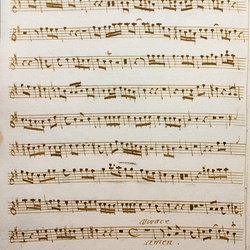 Vivace
amen